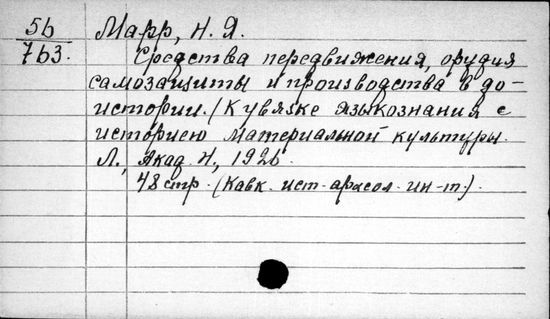 5б
7Ь3.
Марр, Н. Я.
Средства передвижения, орудия
самозащиты и производства в до-
истории. (К увязке языкознания с
историею материальной культуры.
Л., Акад. Н., 1926.
48 стр. (Кавк. ист.-археол. ин-т.).